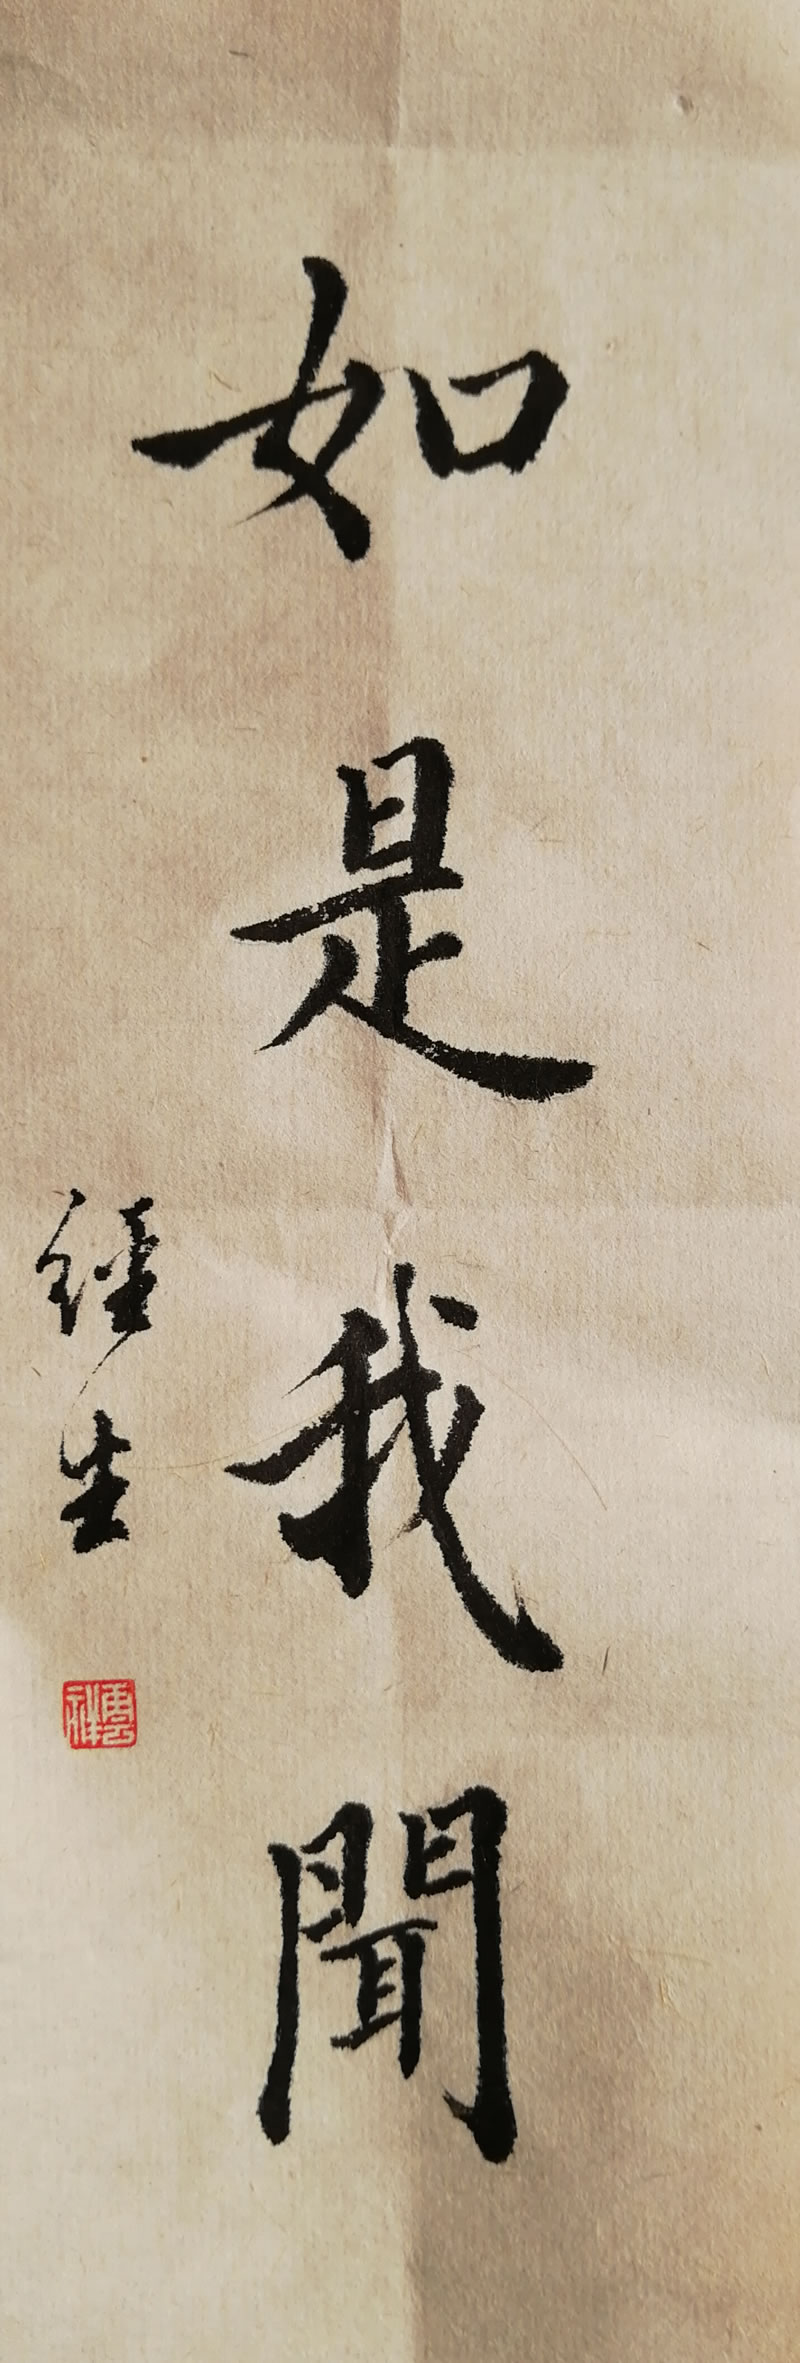 如是我聞
經生